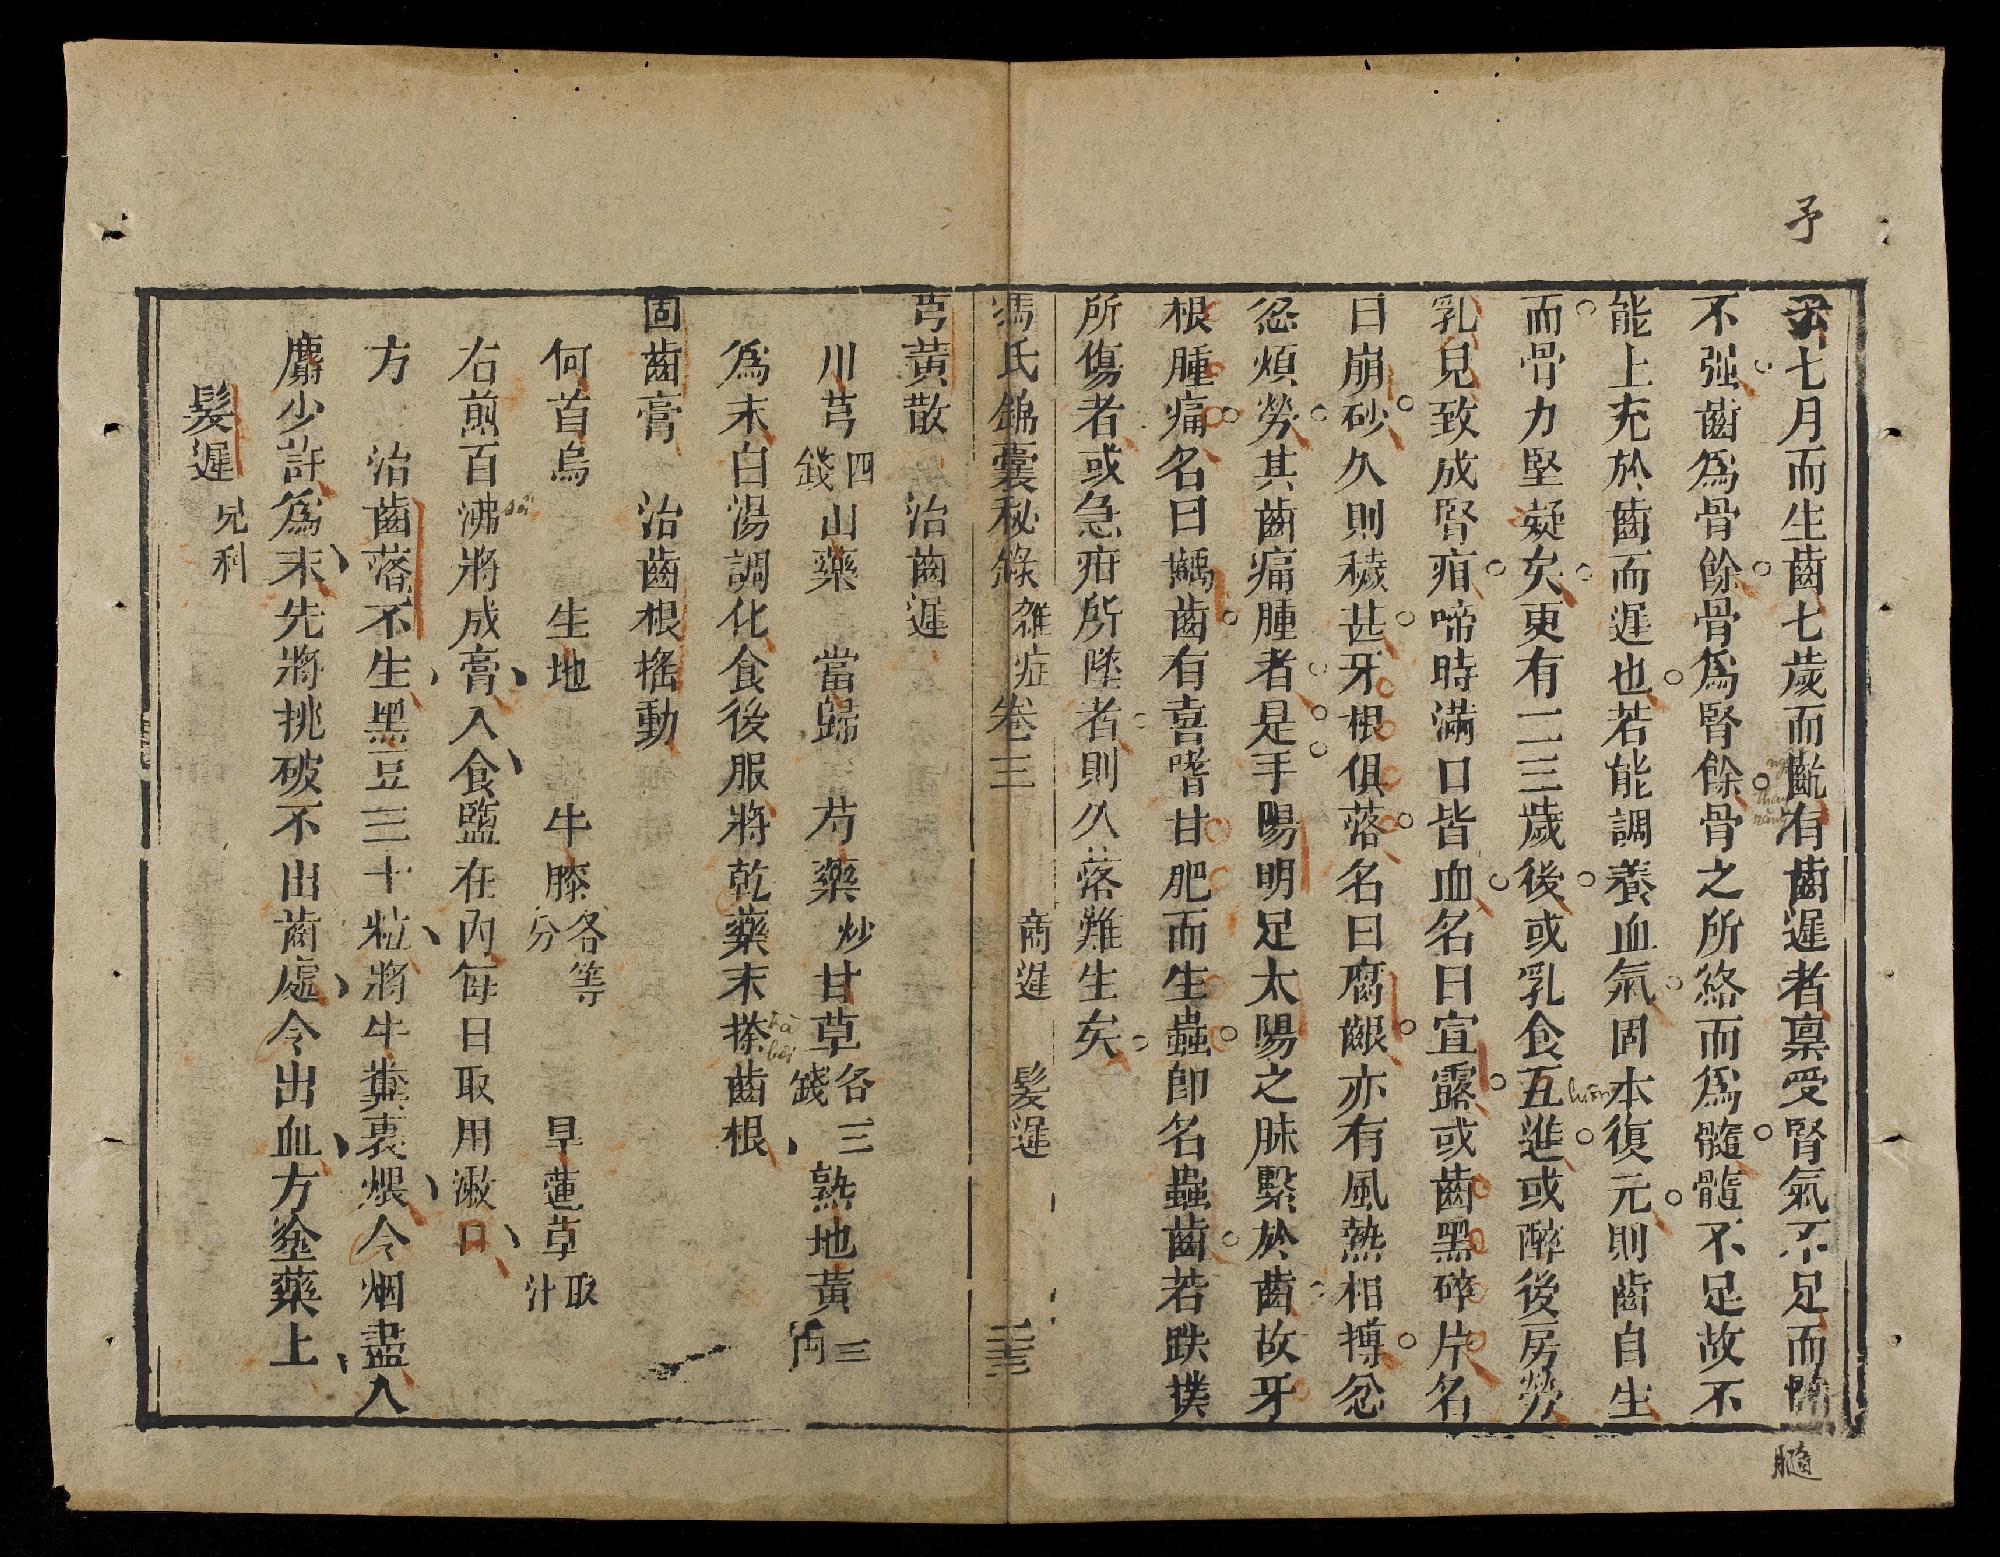 予
七月而生齒七歲而齔有齒遲者稟受腎氣不足而髓
不强齒為骨餘骨為腎餘骨之所絡而為髓髓不足故不
能上充於齒而遲也若能調養血氣固本復元則齒自生
而骨力堅凝矣更有二三歲後或乳食五進或醉後房勞
乳兒致成腎疳啼時滿口皆血名曰宣露或齒黑碎片名
曰崩砂久則穢甚牙根俱落名曰腐齦亦有風熱相搏忿
忿煩勞其齒痛腫者是手陽明足太陽之脉繫於齒故牙
根腫痛名曰齲齒有喜嗜甘肥而生蟲即名蟲齒若跌撲
所傷者或急疳所墜者則久落難生矣
髓
sôi
hà
bôi
馮氏錦囊秘錄 雜症 卷三 齒遲 髪遲
芎黃散 治齒遲
川芎四錢 山藥 當歸 芍藥炒 甘草各三錢 熟地黃三兩
為末白湯調化食後服將乾藥末搽齒根
固齒膏 治齒根搖動
何首烏 生地 牛膝各等分 旱蓮草取汁
右煎百沸將成膏入食鹽在內每日取用漱口
方 治齒落不生黑豆三十粒將牛糞裹煨令烟盡入
麝少許為末先將挑破不出齒處令出血方塗藥上
髪遲 兒科